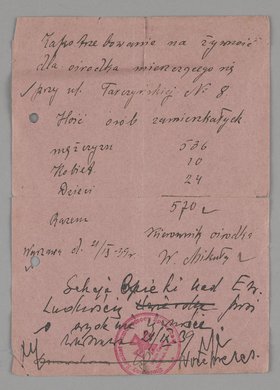 Zapotrzebowanie na żywność
dla ośrodka mieszczącego się
przy ul. Tarczyńskiej № 8
Ilość osób zamieszkałych
mężczyzn 536
Kobiet 10
Dzieci 24
570
Razem
Kierownik ośrodka
Warszawa d. 21/IX 39 r.
W. Mikuły
Sekcja Opieki nad Ew.
Ludności prosi
o wydanie
21.IX.39